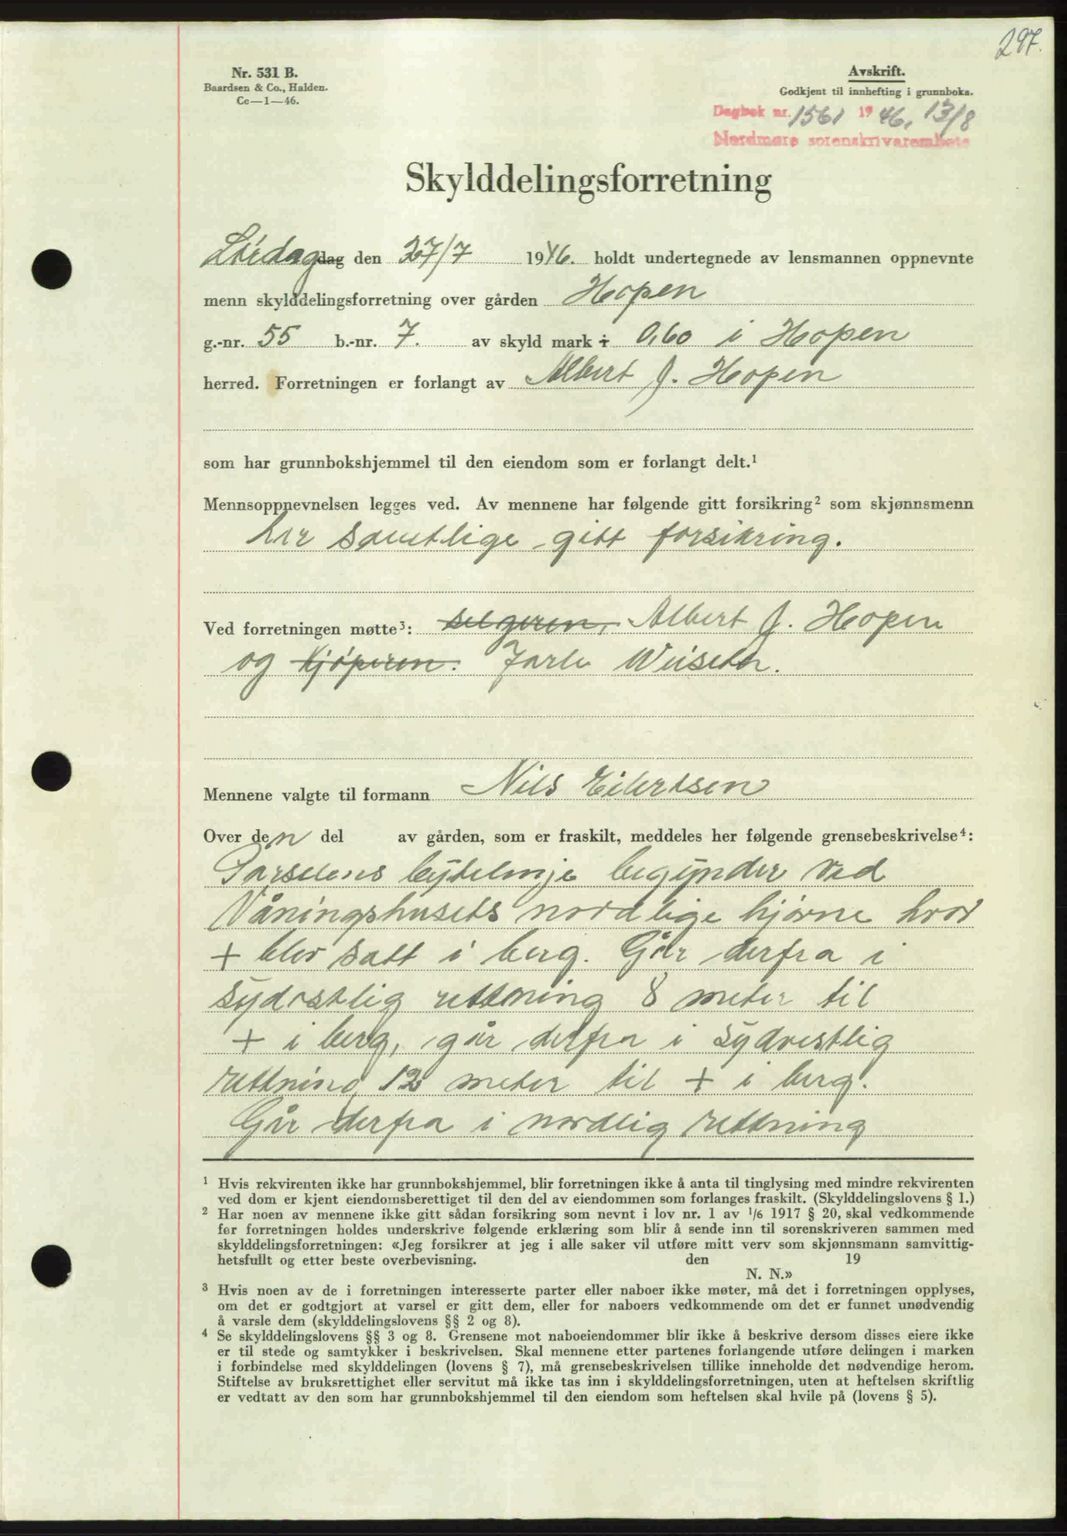 297.
Nr. 531 B.
Baardsen & Co., Halden.
Cc—1—46.
Avskrift.
Godkjent til innhefting i grunnboka.
Dagbok nr. 1561 1946, 13/8
Nordmøre sorenskriverembete
Skylddelingsforretning
Lørdag dag den 27/7 1946. holdt undertegnede av lensmannen oppnevnte
menn skylddelingsforretning over gården Hopen
g.-nr. 55 b.-nr. 7. av skyld mark 0,60 i Hopen
herred. Forretningen er forlangt av Albert J. Hopen
som har grunnbokshjemmel til den eiendom som er forlangt delt.¹
Mennsoppnevnelsen legges ved. Av mennene har følgende gitt forsikring² som skjønnsmenn
har samtlige gitt forsikring.
Ved forretningen møtte³: selgeren, Albert J. Hopen
og kjøperen. Jarle
Mennene valgte til formann Nils Eilertsen
Over den del av gården, som er fraskilt, meddeles her følgende grensebeskrivelse⁴:
Parselens bytelinje begynder ved
Våningshusets nordlige hjørne hvor
+ blev satt i berg. Går derfra i
sydøstlig rettning 8 meter til
+ i berg, går derfra i sydvestlig
rettning 12 meter til + i berg.
Går derfra i nordlig rettning
¹ Hvis rekvirenten ikke har grunnbokshjemmel, blir forretningen ikke å anta til tinglysing med mindre rekvirenten
ved dom er kjent eiendomsberettiget til den del av eiendommen som forlanges fraskilt. (Skylddelingslovens § 1.)
² Har noen av mennene ikke gitt sådan forsikring som nevnt i lov nr. 1 av 1/6 1917 § 20, skal vedkommende
før forretningen holdes underskrive følgende erklæring som blir å sende inn til sorenskriveren sammen med
skylddelingsforretningen: «Jeg forsikrer at jeg i alle saker vil utføre mitt verv som skjønnsmann samvittig-
hetsfullt og etter beste overbevisning. den 19
N. N.»
³ Hvis noen av de i forretningen interesserte parter eller naboer ikke møter, må det i forretningen opplyses,
om det er godtgjort at varsel er gitt dem, eller for naboers vedkommende om det er funnet unødvendig
å varsle dem (skylddelingslovens §§ 2 og 8).
⁴ Se skylddelingslovens §§ 3 og 8. Grensene mot naboeiendommer blir ikke å beskrive dersom disses eiere ikke
er til stede og samtykker i beskrivelsen. Skal mennene etter partenes forlangende utføre delingen i marken
i forbindelse med skylddelingen (lovens § 7), må grensebeskrivelsen tillike inneholde det nødvendige herom.
Stiftelse av bruksrettighet eller servitut må ikke tas inn i skylddelingsforretningen, uten at heftelsen skriftlig
er vedtatt av den som har grunnbokshjemmel til den eiendom som heftelsen skal hvile på (lovens § 5).